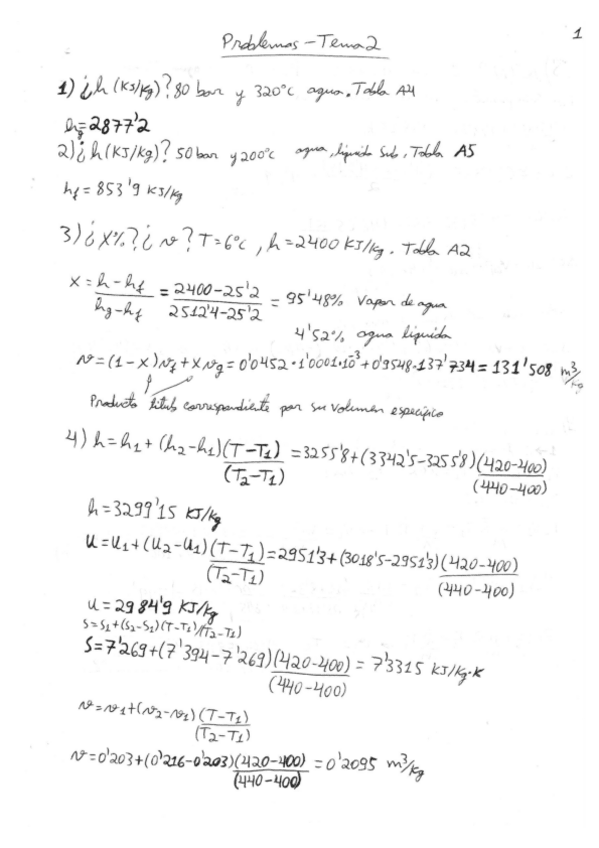 1
Problemas - Tema 2
1) ¿h (KJ/kg)? 80 bar y 320°C agua. Tabla A4
hg=2877'2
2) ¿h (KJ/kg)? 50 bar y 200°C agua, líquido sub, Tabla A5
hf = 853'9 KJ/kg
3) ¿X%? ¿v? T=6°C, h=2400 KJ/kg. Tabla A2
X = (h-hf)/(hg-hf) = (2400-25'2)/(2512'4-25'2) = 95'48% Vapor de agua
4'52% agua líquida
v=(1-x)vf+xvg=0'0452·1'0001·10³+0'9548·137'734=131'508 m³/kg
Producto título correspondiente por su volumen específico
4) h=h1+(h2-h1)(T-T1)/(T2-T1)=3255'8+(3342'5-3255'8)(420-400)/(440-400)
h=3299'15 KJ/kg
u=u1+(u2-u1)(T-T1)/(T2-T1)=2951'3+(3018'5-2951'3)(420-400)/(440-400)
u=2984'9 KJ/kg
s=s1+(s2-s1)(T-T1)/(T2-T1)
S=7'269+(7'394-7'269)(420-400)/(440-400)=7'3315 KJ/kg·K
v=v1+(v2-v1)(T-T1)/(T2-T1)
v=0'203+(0'216-0'203)(420-400)/(440-400)=0'2095 m³/kg